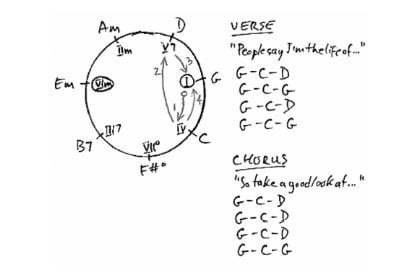 Am
D
IIm
V7
2
3
Em
VIm
I
G
1
4
IV
C
B7
III7
VII°
F#°
VERSE
"People say I'm the life of..."
G-C-D
G-C-G
G-C-D
G-C-G
CHORUS
"So take a good look at..."
G-C-D
G-C-D
G-C-D
G-C-G